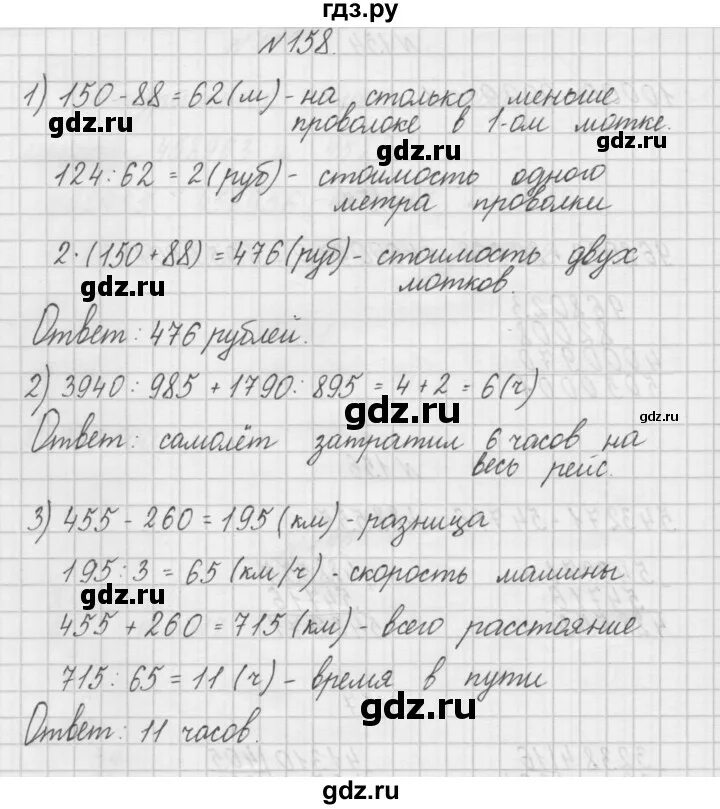 гдз.ру
№158.
1) 150-88=62(м)-на столько меньше
gdz.ru проволоке в 1-ом мотке.
gdz.ru
124:62=2(руб)- стоимость одного
метра проволки
gdz.ru
2·(150+88)=476(руб)- стоимость двух
gdz.ru мотков.
gdz.ru
Ответ: 476 рублей.
2) 3940:985+1790:895=4+2=6(ч)
gdz.ru gdz.ru
Ответ: самолёт затратил 6 часов на
весь рейс.
3) 455-260=195(км)-разница
gdz.ru
195:3=65(км/ч)-скорость машины
gdz.ru gdz.ru
455+260=715(км)-всего расстояние
715:65=11(ч)-время в пути
gdz.ru
Ответ: 11 часов.
gdz.ru